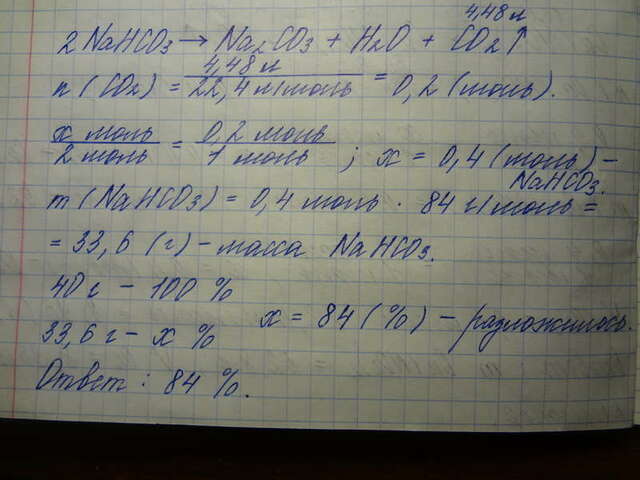 4,48 л
2 NaHCO3 → Na2CO3 + H2O + CO2↑
n (CO2) = 4,48 л / 22,4 л/моль = 0,2 (моль).
x моль / 2 моль = 0,2 моль / 1 моль ; x = 0,4 (моль) –
NaHCO3.
m (NaHCO3) = 0,4 моль · 84 г/моль =
= 33,6 (г) – масса NaHCO3.
40 г – 100 %
33,6 г – x % x = 84 (%) – разложилось.
Ответ : 84 %.